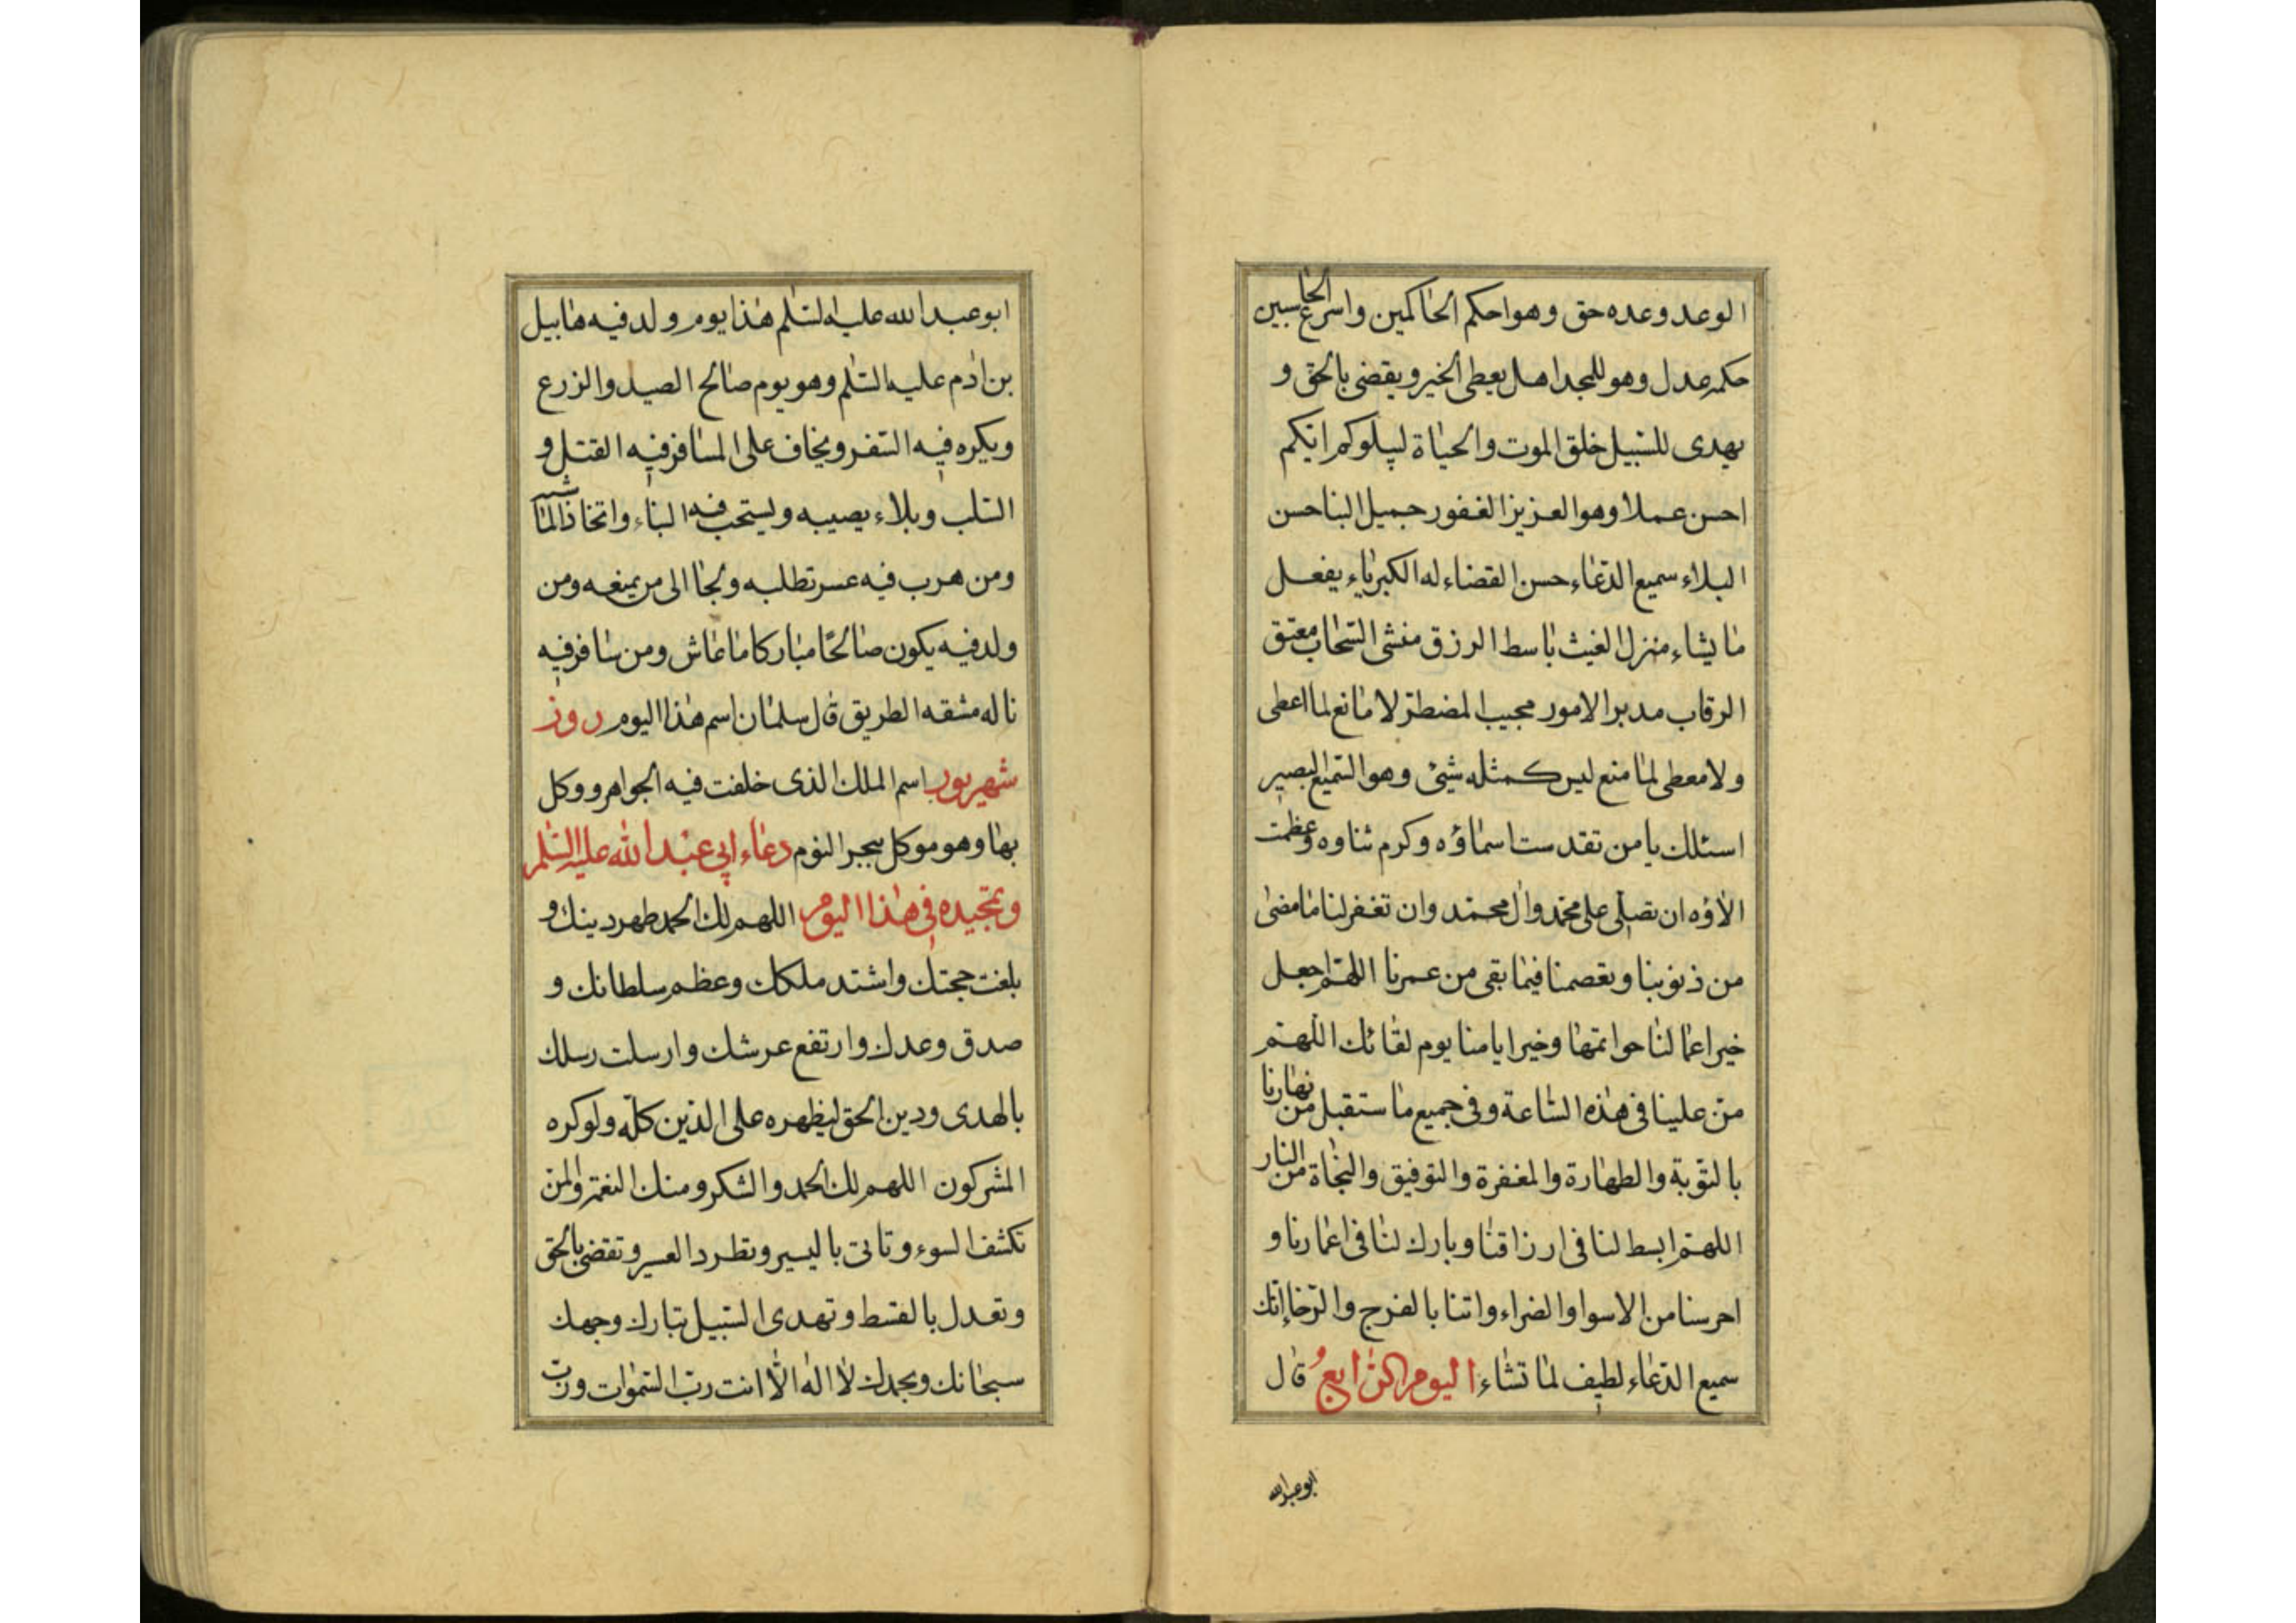 الوعد وعده حق وهو احكم الحاكمين واسرع الحاسبين
حكمه عدل وهو للمجد اهل يعطى الخير ويقضى بالحق و
يهدى للسّبيل خلق الموت والحياة ليبلوكم ايّكم
احسن عملا وهو العزيز الغفور جميل الثنا حسن
البلاء سميع الدّعاء حسن القضاء له الكبرياء يفعل
ما يشاء منزل الغيث باسط الرزق منشئ السّحاب معتق
الرقاب مدبر الامور مجيب المضطرّ لا مانع لما اعطى
ولا معطى لما منع ليس كمثله شيئ وهو السّميع البصير
اسئلك يا من تقدست اسماؤه وكرم ثناوه وعظمت
الاؤه ان تصلّى على محمّد وال محمّد وان تغفر لنا ما مضى
من ذنوبنا وتعصمنا فيما بقى من عمرنا اللهمّ اجعل
خير اعمالنا خواتمها وخير ايامنا يوم لقائك اللّهمّ
منّ علينا فى هذه السّاعة وفى جميع ما ستقبل من نهارنا
بالتّوبة والطهارة والمغفرة والتوفيق والنجاة من النار
اللهمّ ابسط لنا فى ارزاقنا وبارك لنا فى اعمارنا و
احرسنا من الاسوا والضراء واتنا بالفرج والرّخا انّك
سميع الدّعاء لطيف لما تشاء اليوم الرّابع قال
ابو عبدالله
ابو عبدالله عليه السّلم هذا يوم ولد فيه هابيل
بن ادم عليه السّلم وهو يوم صالح الصيد والزرع
ويكره فيه السّفر ويخاف على المسافر فيه القتل و
السّلب وبلاء يصيبه ويستحب فيه البناء واتخاذ الماشيه
ومن هرب فيه عسر تطلبه ولجا الى من يمنعه ومن
ولد فيه يكون صالحًا مباركا ما عاش ومن سافر فيه
ناله مشقه الطريق قال سلمان اسم هذا اليوم روز
شهريور اسم الملك الذى خلقت فيه الجواهر ووكل
بها وهو موكل ببحر النوم دعاء ابى عبد الله عليه السّلم
وتمجيده فى هذا اليوم اللهم لك الحمد طهر دينك و
بلغت حجتك واشتد ملكك وعظم سلطانك و
صدق وعدك وارتفع عرشك وارسلت رسلك
بالهدى ودين الحق ليظهره على الدّين كلّه ولو كره
المشركون اللهم لك الحمد والشكر ومنك النعم والمنّ
تكشف السوء وتاتى باليسير وتطرد العسير وتقضى بالحق
وتعدل بالقسط وتهدى السّبيل تبارك وجهك
سبحانك وبحمدك لا اله الّا انت ربّ السّموات وربّ